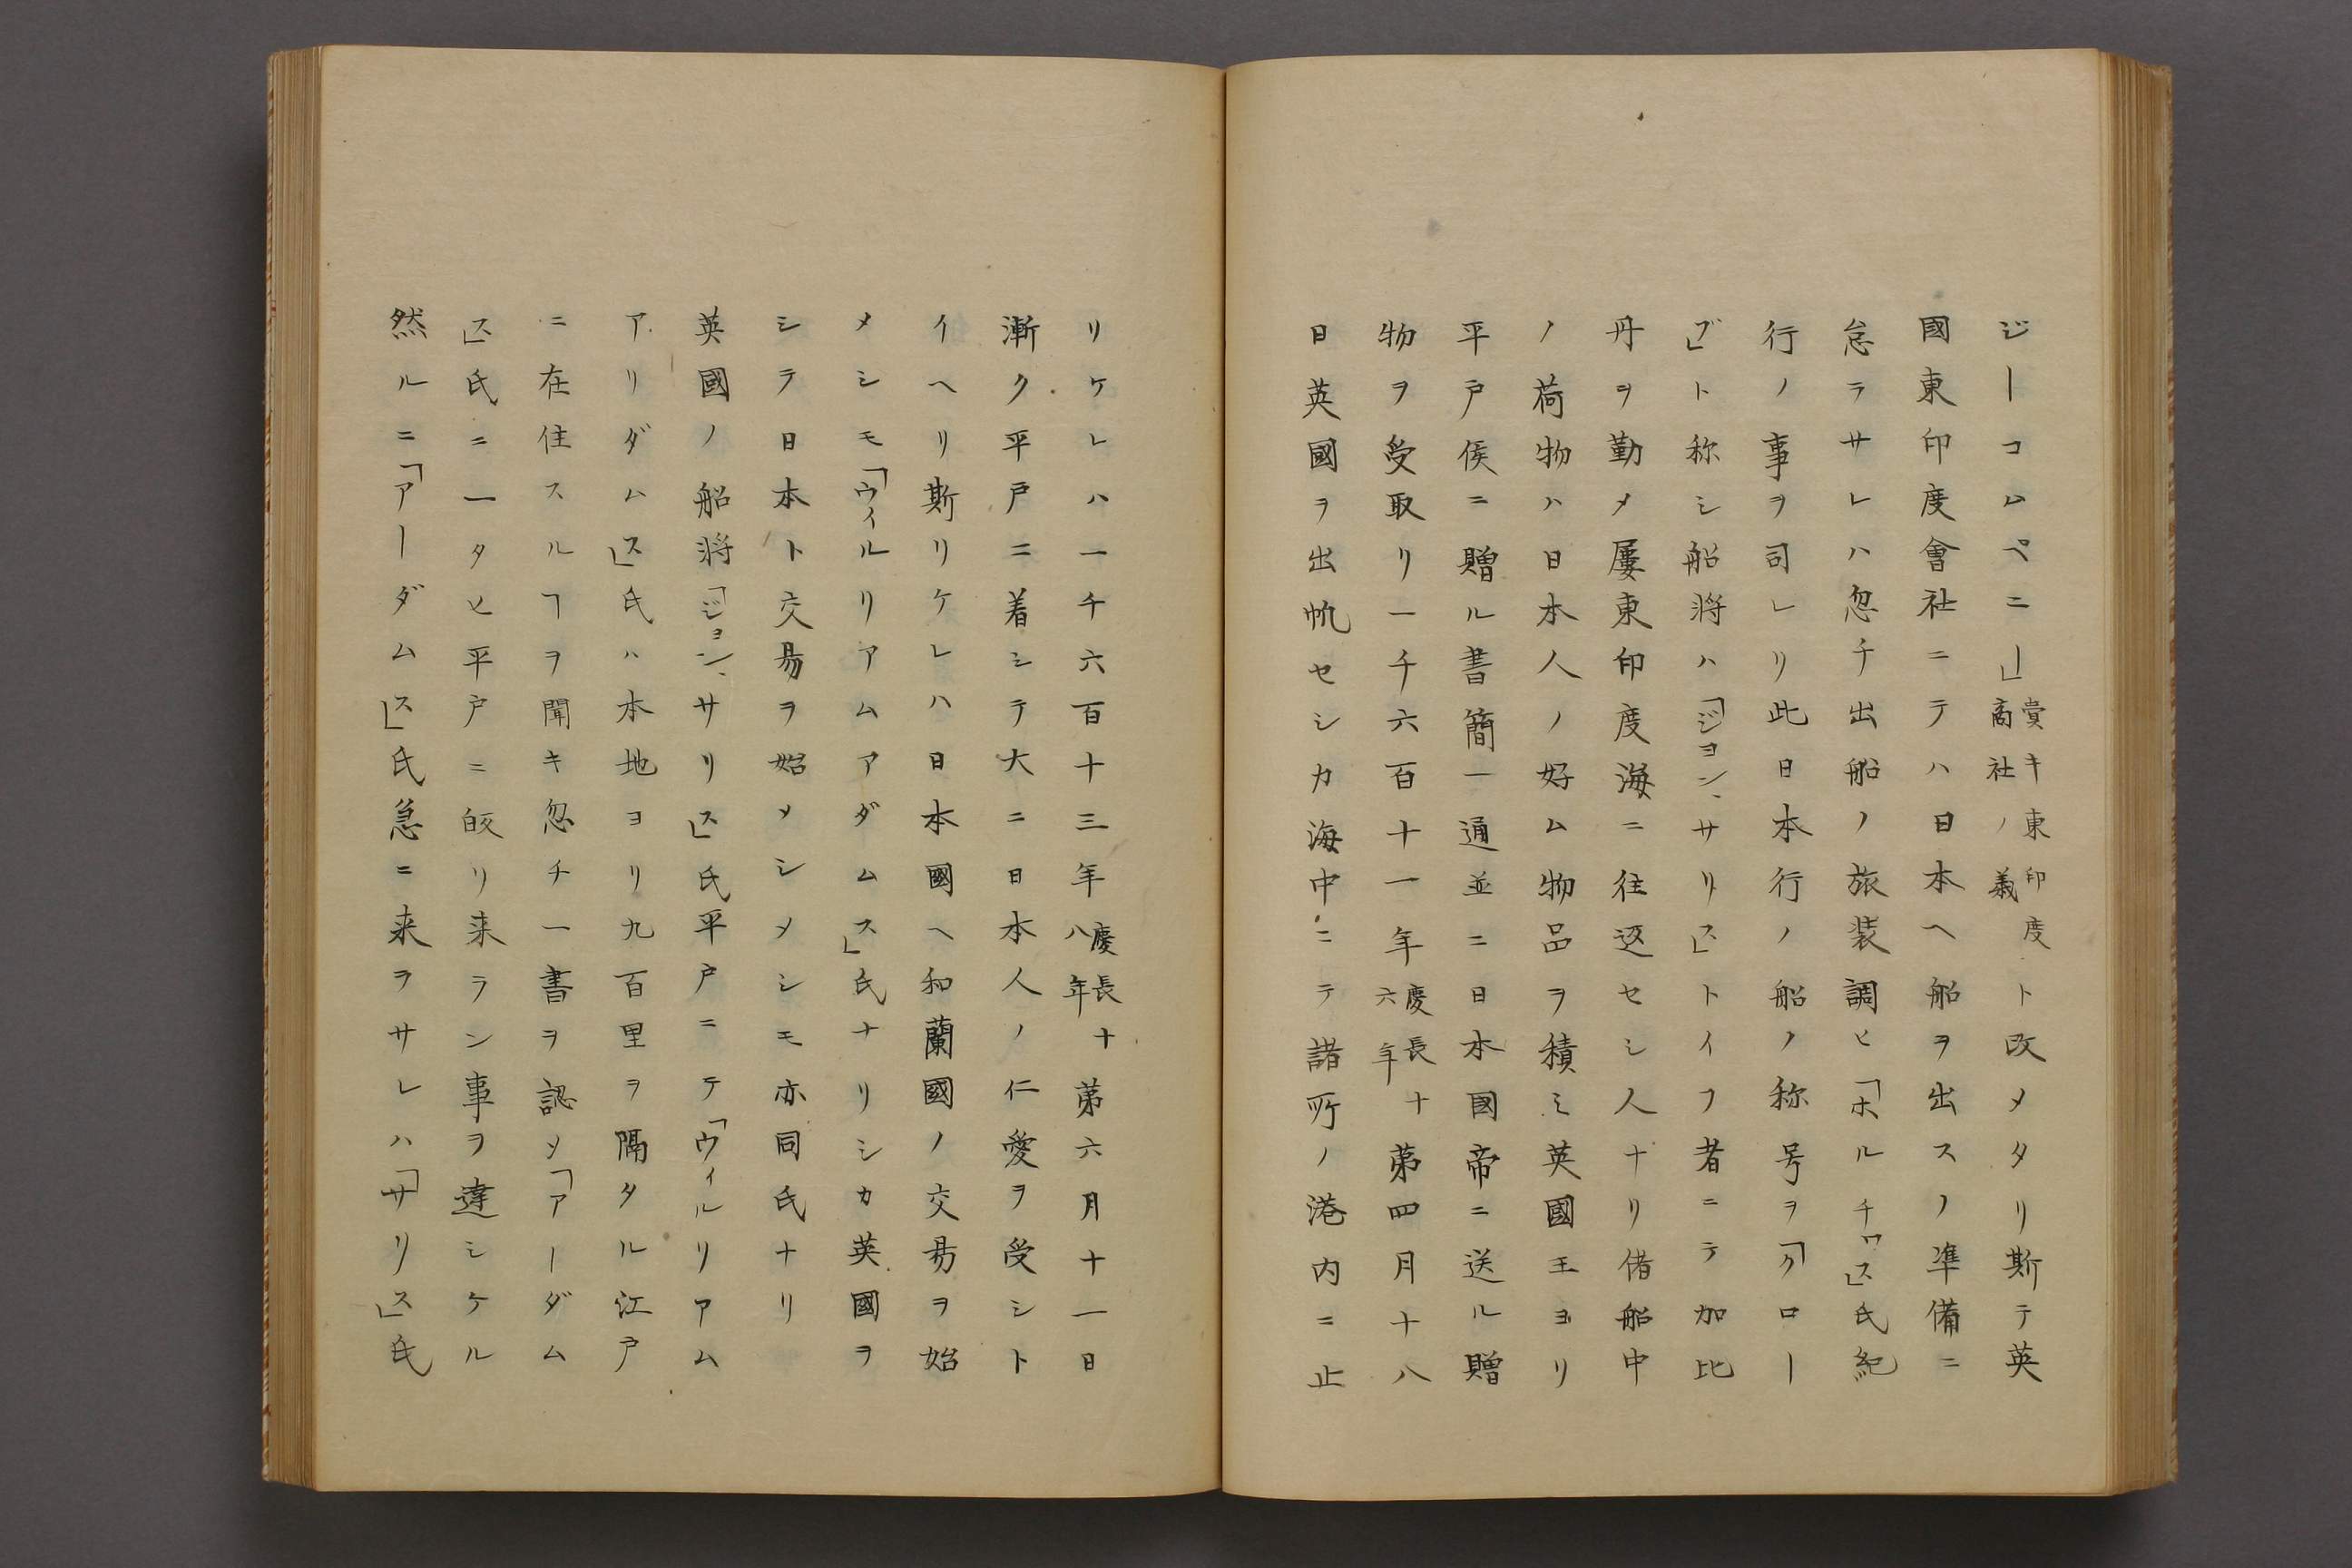 ジーコムペニー」貴キ東印度商社ノ義ト改メタリ斯テ英
國東印度會社ニテハ日本ヘ船ヲ出スノ準備ニ
怠ラサレハ忽チ出船ノ旅装調ヒ「ホルチワス」氏紀
行ノ事ヲ司レリ此日本行ノ船ノ称号ヲ「クロー
ブ」ト称シ船将ハ「ジヨン、サリス」トイフ者ニテ加比
丹ヲ勤メ屢東印度海ニ往返セシ人ナリ偖船中
ノ荷物ハ日本人ノ好ム物品ヲ積ミ英國王ヨリ
平戸侯ニ贈ル書簡一通並ニ日本國帝ニ送ル贈
物ヲ受取リ一千六百十一年慶長十六年第四月十八
日英國ヲ出帆セシカ海中ニテ諸所ノ港内ニ止
リケレハ一千六百十三年慶長十八年第六月十一日
漸ク平戸ニ着シテ大ニ日本人ノ仁愛ヲ受シト
イヘリ斯リケレハ日本國ヘ和蘭國ノ交易ヲ始
メシモ「ウィルリアムアダムス」氏ナリシカ英國ヲ
シテ日本ト交易ヲ始メシメシモ亦同氏ナリ
英國ノ船将「ジヨン、サリス」氏平戸ニテ「ウィルリアム
アリダムス」氏ハ本地ヨリ九百里ヲ隔タル江戸
ニ在住スルヿヲ聞キ忽チ一書ヲ認メ「アーダム
ス」氏ニ一タヒ平戸ニ皈リ来ラン事ヲ達シケル
然ルニ「アーダムス」氏急ニ来ラサレハ「サリス」氏